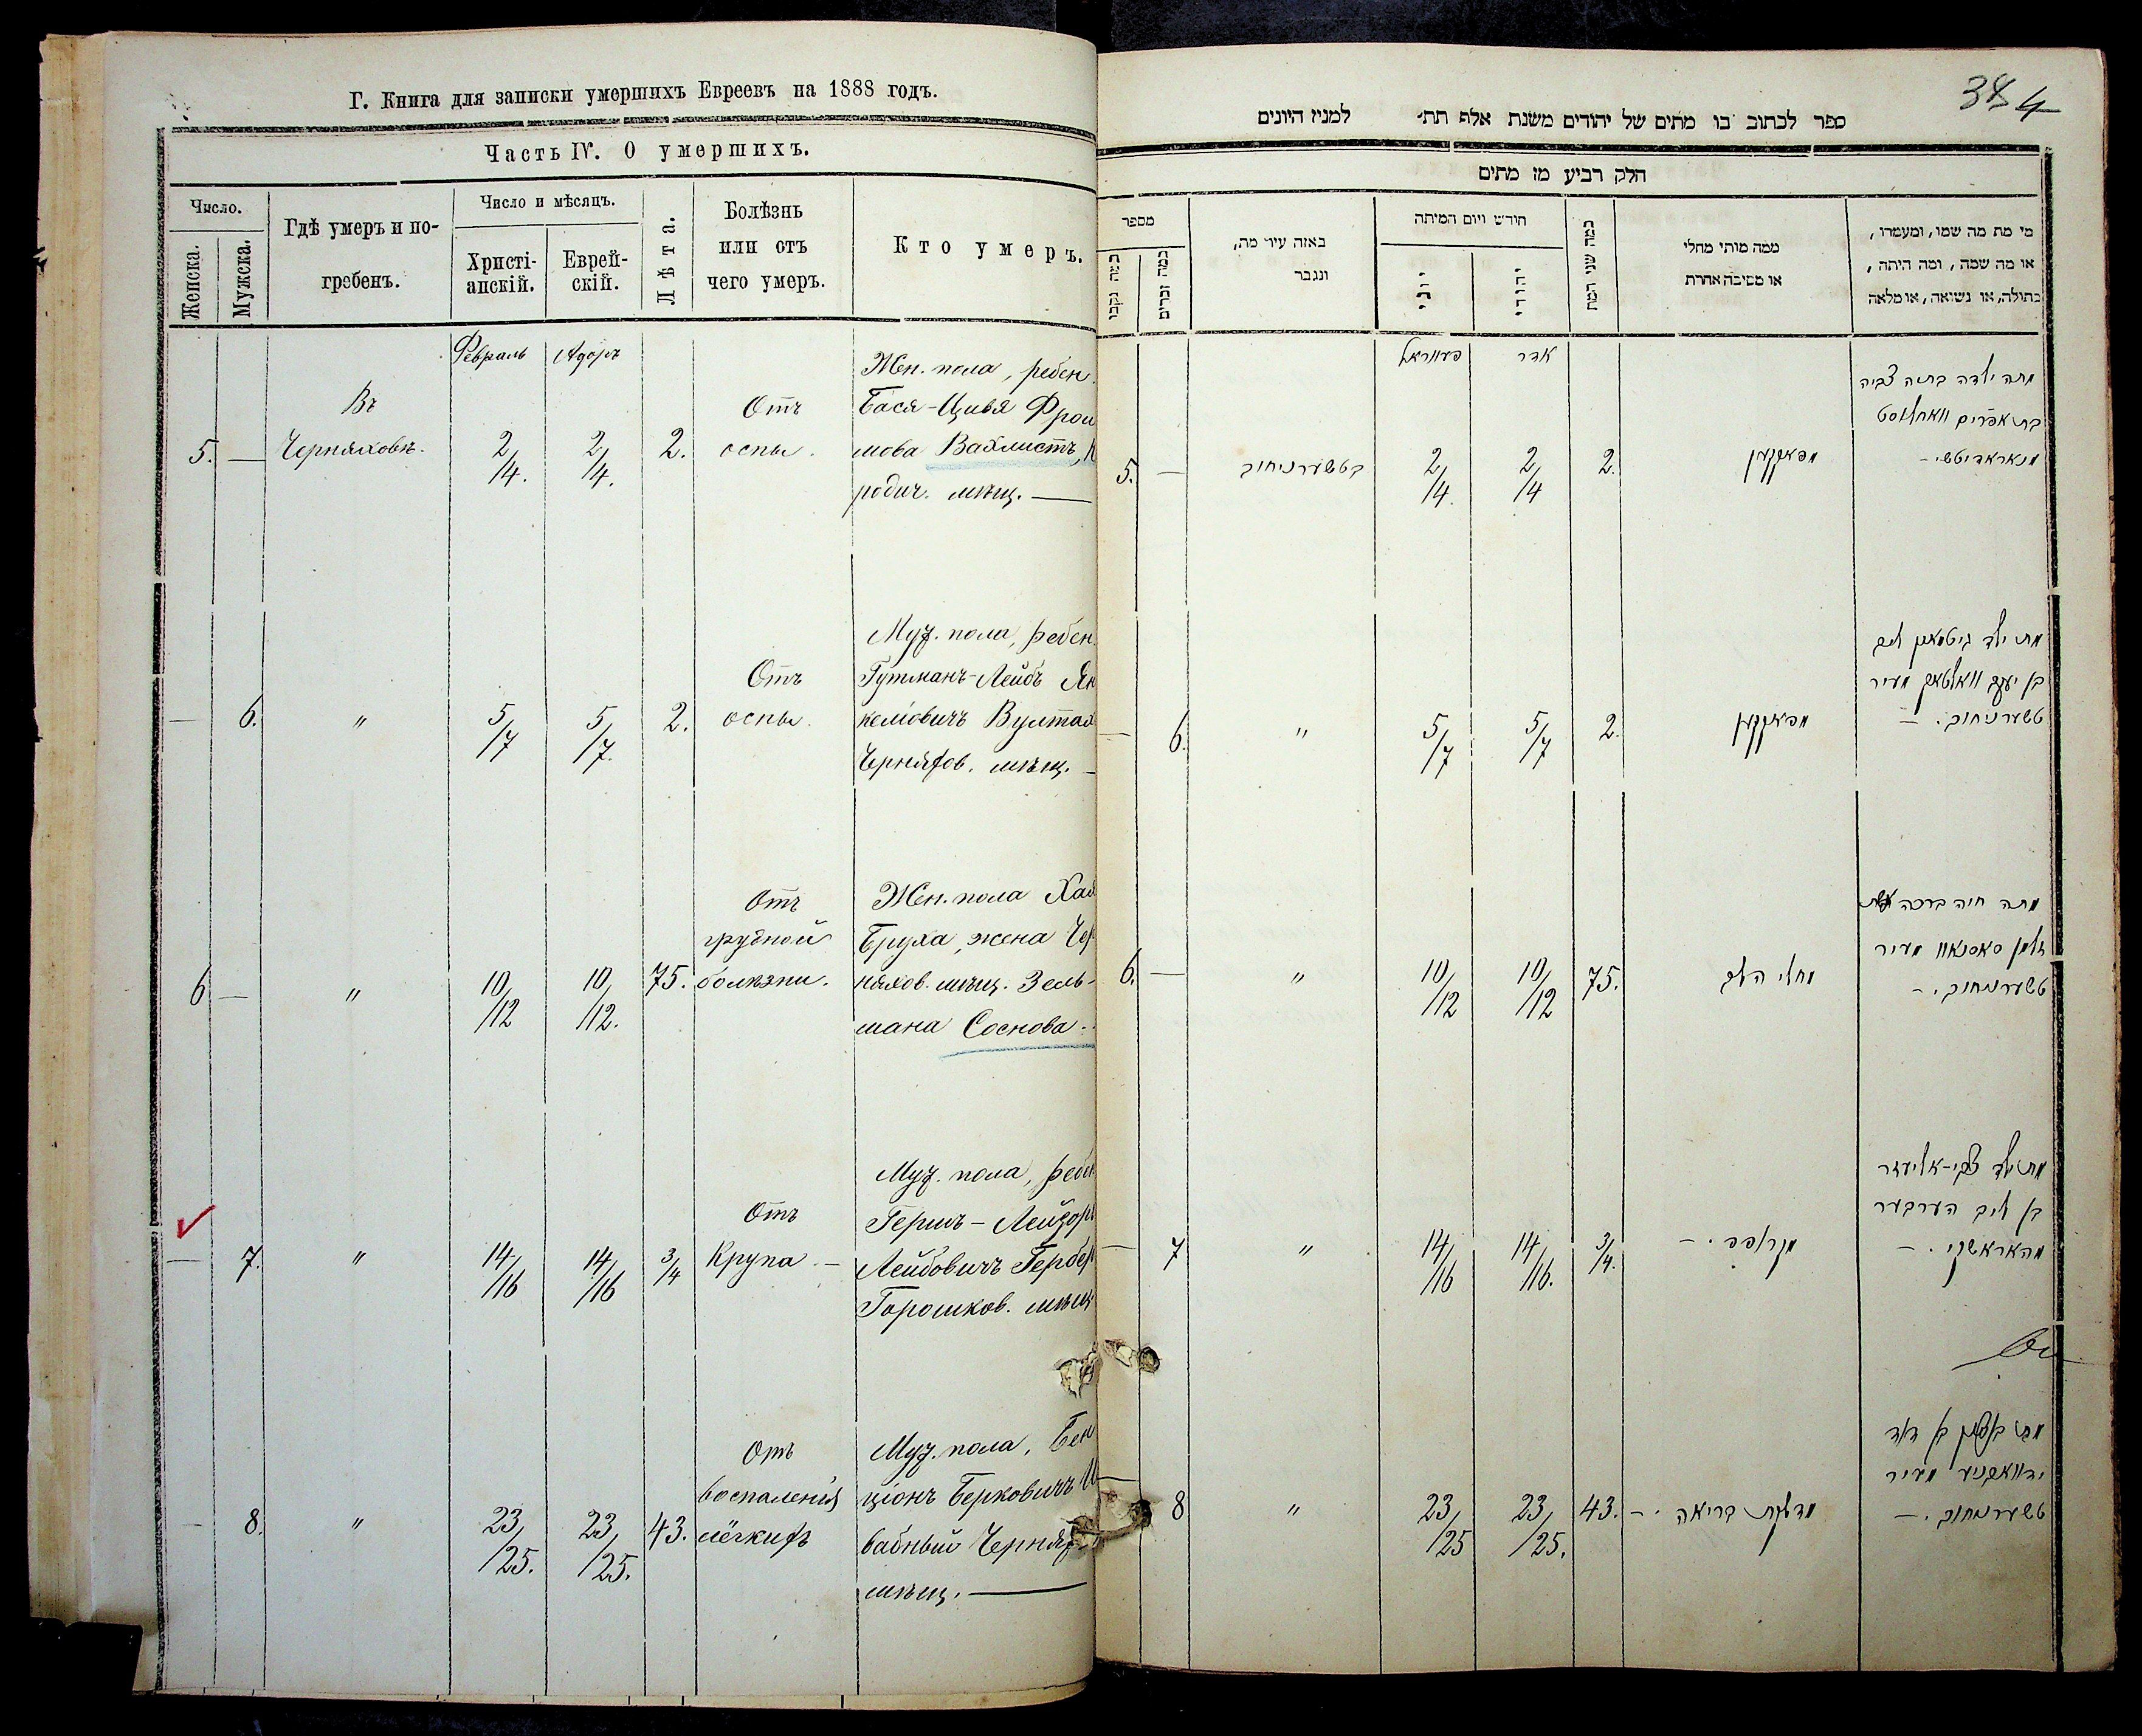 Г. Книга для записки умершихъ Евреевъ на 1888 годъ.
Часть IV. О умершихъ.
Число.
Женска.
Мужска.
Гдѣ умеръ и по-
гребенъ.
Число и мѣсяцъ.
Христі-
анскій.
Еврей-
скій.
Лѣта.
Болѣзнь
или отъ
чего умеръ.
Кто умеръ.
Февраль
Адоръ
5.
—
Въ
Черняховѣ.
2/4.
2/4.
2.
Отъ
оспы.
Жен. пола, ребен.
Бася-Цивья Фрои
мова Вахлистъ,
родич. мѣщ. —
—
6.
"
5/7
5/7.
2.
Отъ
оспы.
Муж. пола, ребен.
Гутманъ-Лейбъ Ян
келіовичъ
Черняхов. мѣщ. —
6
—
"
10/12
10/12.
75.
Отъ
грудной
болѣзни.
Жен. пола Хая
Бруха, жена Чер
няхов. мѣщ. Зель-
мана Соснова.
—
7.
"
14/16
14/16
3/4
Отъ
Крупа. —
Муж. пола, ребен
Гершъ-Лейзоръ
Лейбовичъ Гербер
Горошков. мѣщ
—
8.
"
23/25.
23/25.
43.
Отъ
воспаленія
лёгкихъ
Муж. пола, Бен
ціонъ Берковичъ
вабный Чернях.
мѣщ. —
384
ספר לכתוב בו מתים של יהודים משנת אלף תת״ למנין היונים
חלק רביע מן מתים
מספר
כמה נקבו
כמה זכרים
באזה עיר מת,
ונגבר
חודש ויום המיתה
יוני
יהודי
כמה שני המת
ממה מותי מחלי
או מסיבה אחרת
מי מת מה שמו, ומעמדו,
או מה שמה, ומה היתה,
בתולה, או נשואה, או מלאה
פעווראל
אדר
5.
—
בטשערניחוב
2/4.
2/4
2.
מפאקען
מתה ילדה בתיה צביה
בת אפרים וואחליסט
מנאראדיטשי —
—
6.
"
5/7
5/7
2.
מפאקען
מת ילד גיטמאן ליב
בן יעקב מעיר
טשערניחוב. —
6.
—
"
10/12
10/12
75.
מחלי הלב
מתה חיה ברכה אשת
זלמן סאסנאוו מעיר
טשערניחוב. —
—
7
"
14/16
14/16.
3/4.
מקרופפ. —
מת ילד צבי-אליעזר
בן ליב הערבער
מהאראשקי. —
—
8
"
23/25
23/25.
43.
מדלקת הריאה. —
מת בן ציון בן דוב
מעיר
טשערניחוב. —